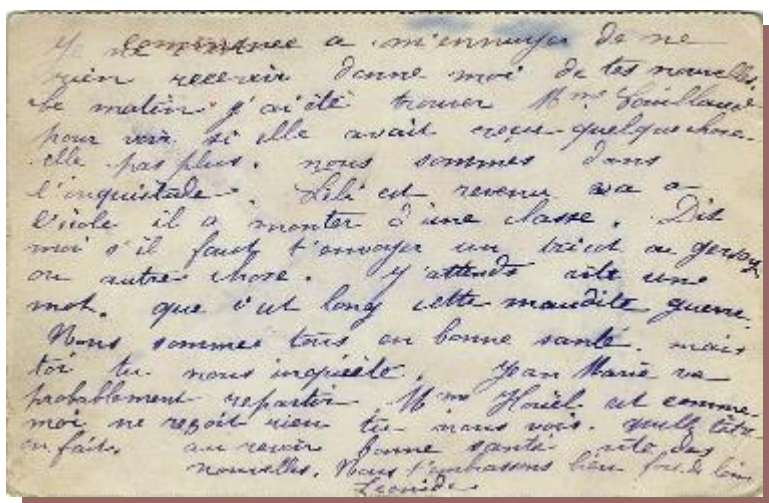 Y commence a m'ennuyer de ne
rien recevoir donne moi de tes nouelles.
ce matin j'ai été trouver Mme
pour voir si elle avait reçu quelque chose.
elle pas plus. nous sommes dans
l'inquiétude. Lili est revenu va a
l'école il a monter d'une classe. Dit
moi s'il faut t'envoyer un tricot ou
ou autre chose. Y'attends vite une
mot. que c'est long cette maudite guerre.
Nous sommes tous en bonne santé. mais
toi tu nous inquiète. Jean Marie va
probablement repartir Mme est comme
moi ne reçoit rien tu nous vois. quelle tête
on fait. au revoir bonne santé vite des
nouvelles. Nous t'embrassons bien fou de loin
Leonide.